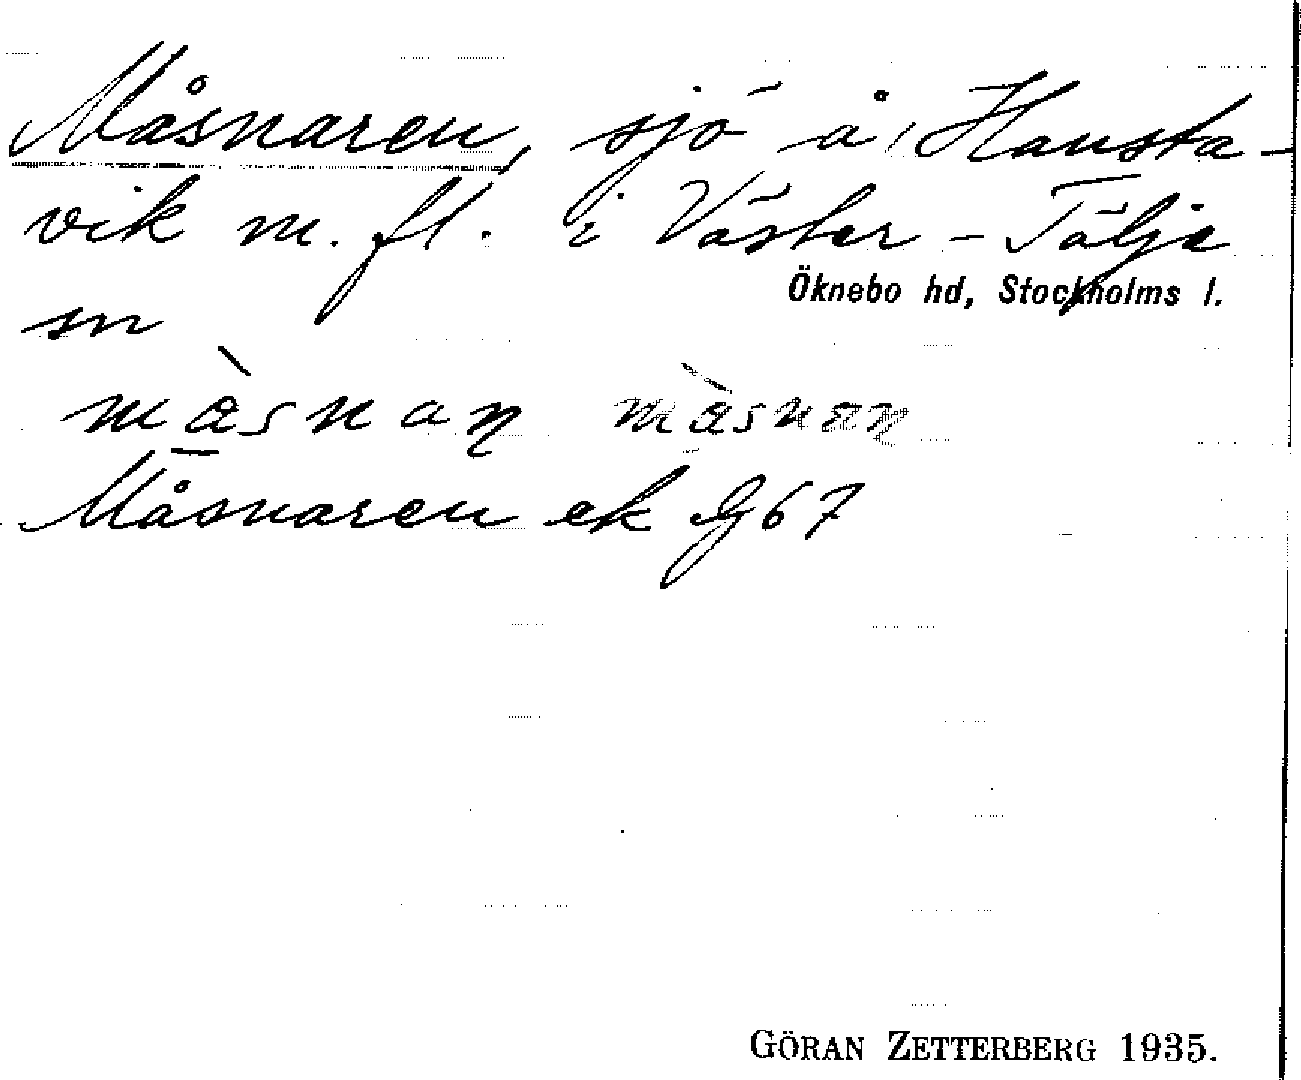 Måsnaren, sjö å Hansta-
vik m. fl. i Väster-Tälje
Öknebo hd, Stockholms l.
sn
màsnaṉ màsnaṉ
Måsnaren ek G 67
GÖRAN ZETTERBERG 1935.